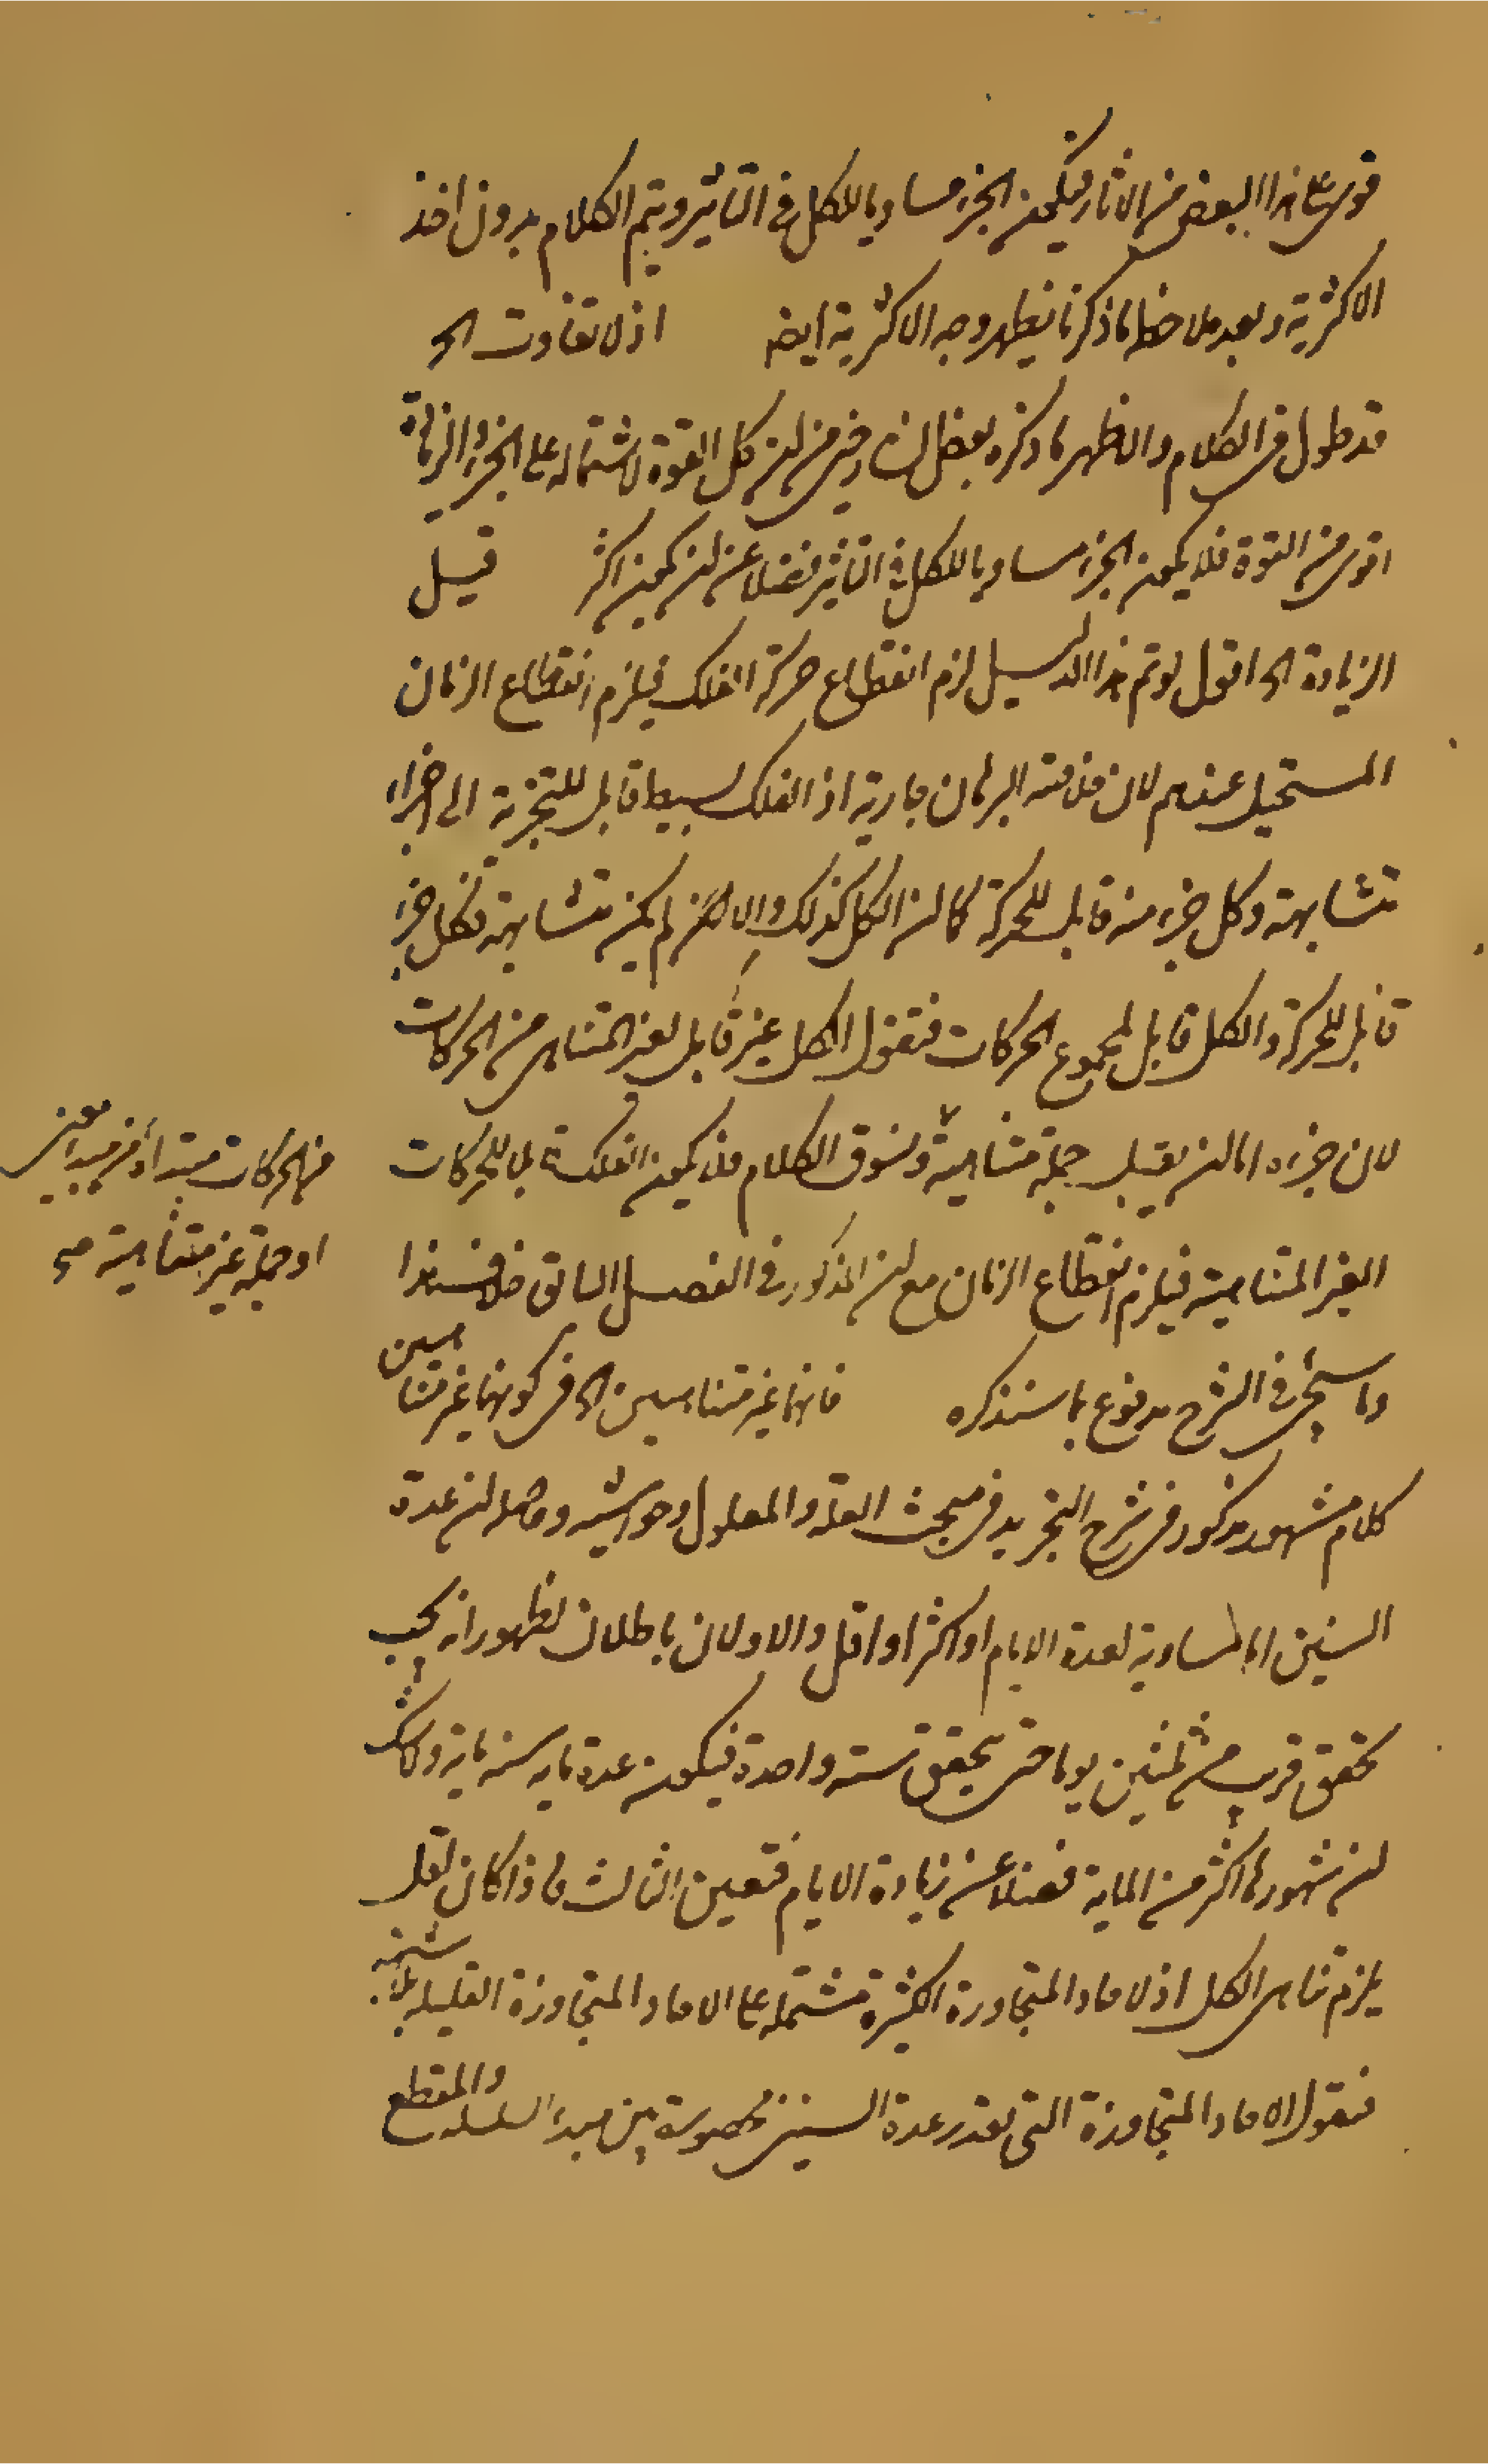 قوى على هذا البعض من الآثار فيكون الجزء مساويا للكل فى التاثير ويتم الكلام بدون اخذ
الاكثرية وبعد ملاحظة ما ذكرنا يظهر وجه الاكثرية ايضا اذ لا تفاوت الخ
قد طول فى الكلام والاظهر ما ذكره بعض الشارحين من ان كل القوة لاشتماله على الجزء والزيادة
اقوى من القوة فلا يكون الجزء مساويا للكل فى التاثير فضلا عن ان يكون اكثر قيل
الزيادة الخ اقول لو تم هذا الدليل لزم انقطاع حركة الفلك فيلزم انقطاع الزمان
المستحيل عندهم لان مقدمة البرهان جارية اذ الفلك بسيط قابل للتجزية الى اجزاء
متشابهة وكل جزء منه قابل للحركة كما ان الكل كذلك والا لم يكن متشابهة فكل جزء
قابل للحركة والكل قابل لمجموع الحركات فنقول الكل غير قابل لغير المتناهى من الحركات
لان جزءه اما ان يقبل جملة متناهية ونسوق الكلام فلا يكون الفلك قابلا للحركات
من الحركات مبتدأ من مبدأ معين
او جملة غير متناهية صح
الغير المتناهية فيلزم انقطاع الزمان مع ان المذكور فى الفصل الساتى خلافه هذا
وما سيجئ فى الشرح مدفوع بما سنذكره فانهما غير متناهيين الخ فى كونهما غير متناهيين
كلام مشهور مذكور فى شرح التجريد فى مبحث العلة والمعلول وحواشيه وحاصله ان عدة
السنين اما مساوية لعدة الايام او اكثر او اقل والاولان باطلان لظهور انه يجب
تحقق قريب من ثلثمائين يوما حتى يتحقق سنة واحدة فيكون عدة ماية سنة ماية ولا شك
ان شهورها اكثر من الماية فضلا عن زيادة الايام فتعين الثالث فاذا كان اقل
يلزم تناهى الكل اذ الاحاد المتجاوزة الكثيرة مشتملة على الاحاد المتجاوزة القليلة بلا شبهة
فنقول الاحاد المتجاوزة التى بقدر عدة السنين محصورة بين مبدء السلسلة والمقطع